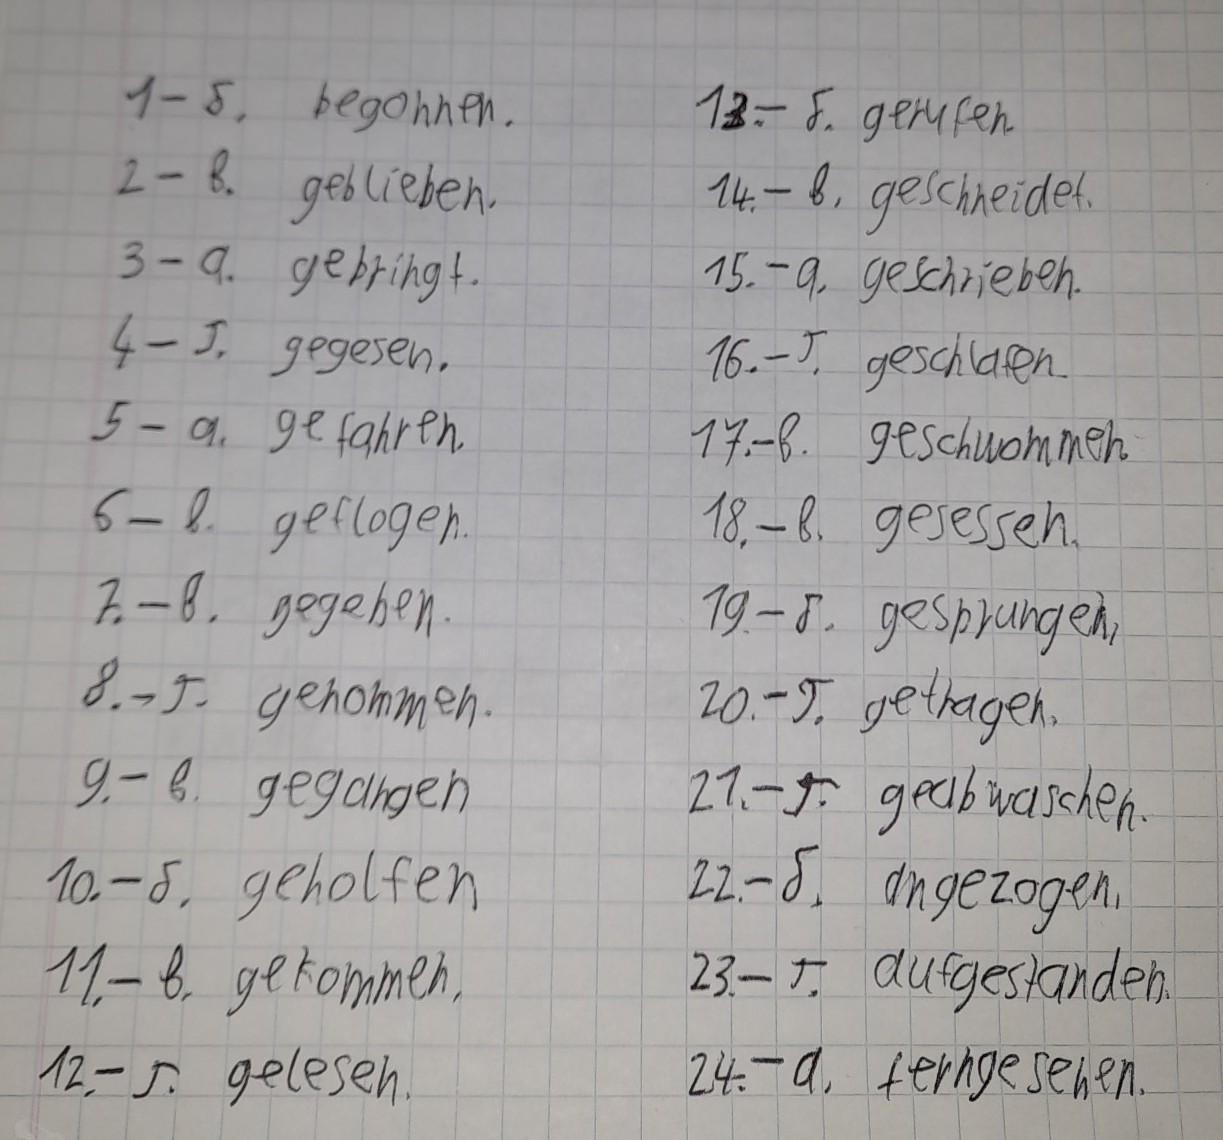 1 - б. begonnen.
2 - в. geblieben.
3 - а. gebringt.
4 - г. gegesen.
5 - а. gefahren.
6 - в. geflogen.
7. - в. gegeben.
8. - г. genommen.
9. - в. gegangen
10. - б. geholfen
11. - в. gekommen.
12. - г. gelesen.
13. - б. gerufen
14. - в. geschneidet.
15. - а. geschrieben.
16. - г. geschlafen
17. - в. geschwommen
18. - в. gesessen.
19. - б. gesprungen,
20. - г. getragen.
21. - г. geabwaschen.
22. - б. angezogen.
23. - г. aufgestanden.
24. - а. ferngesehen.